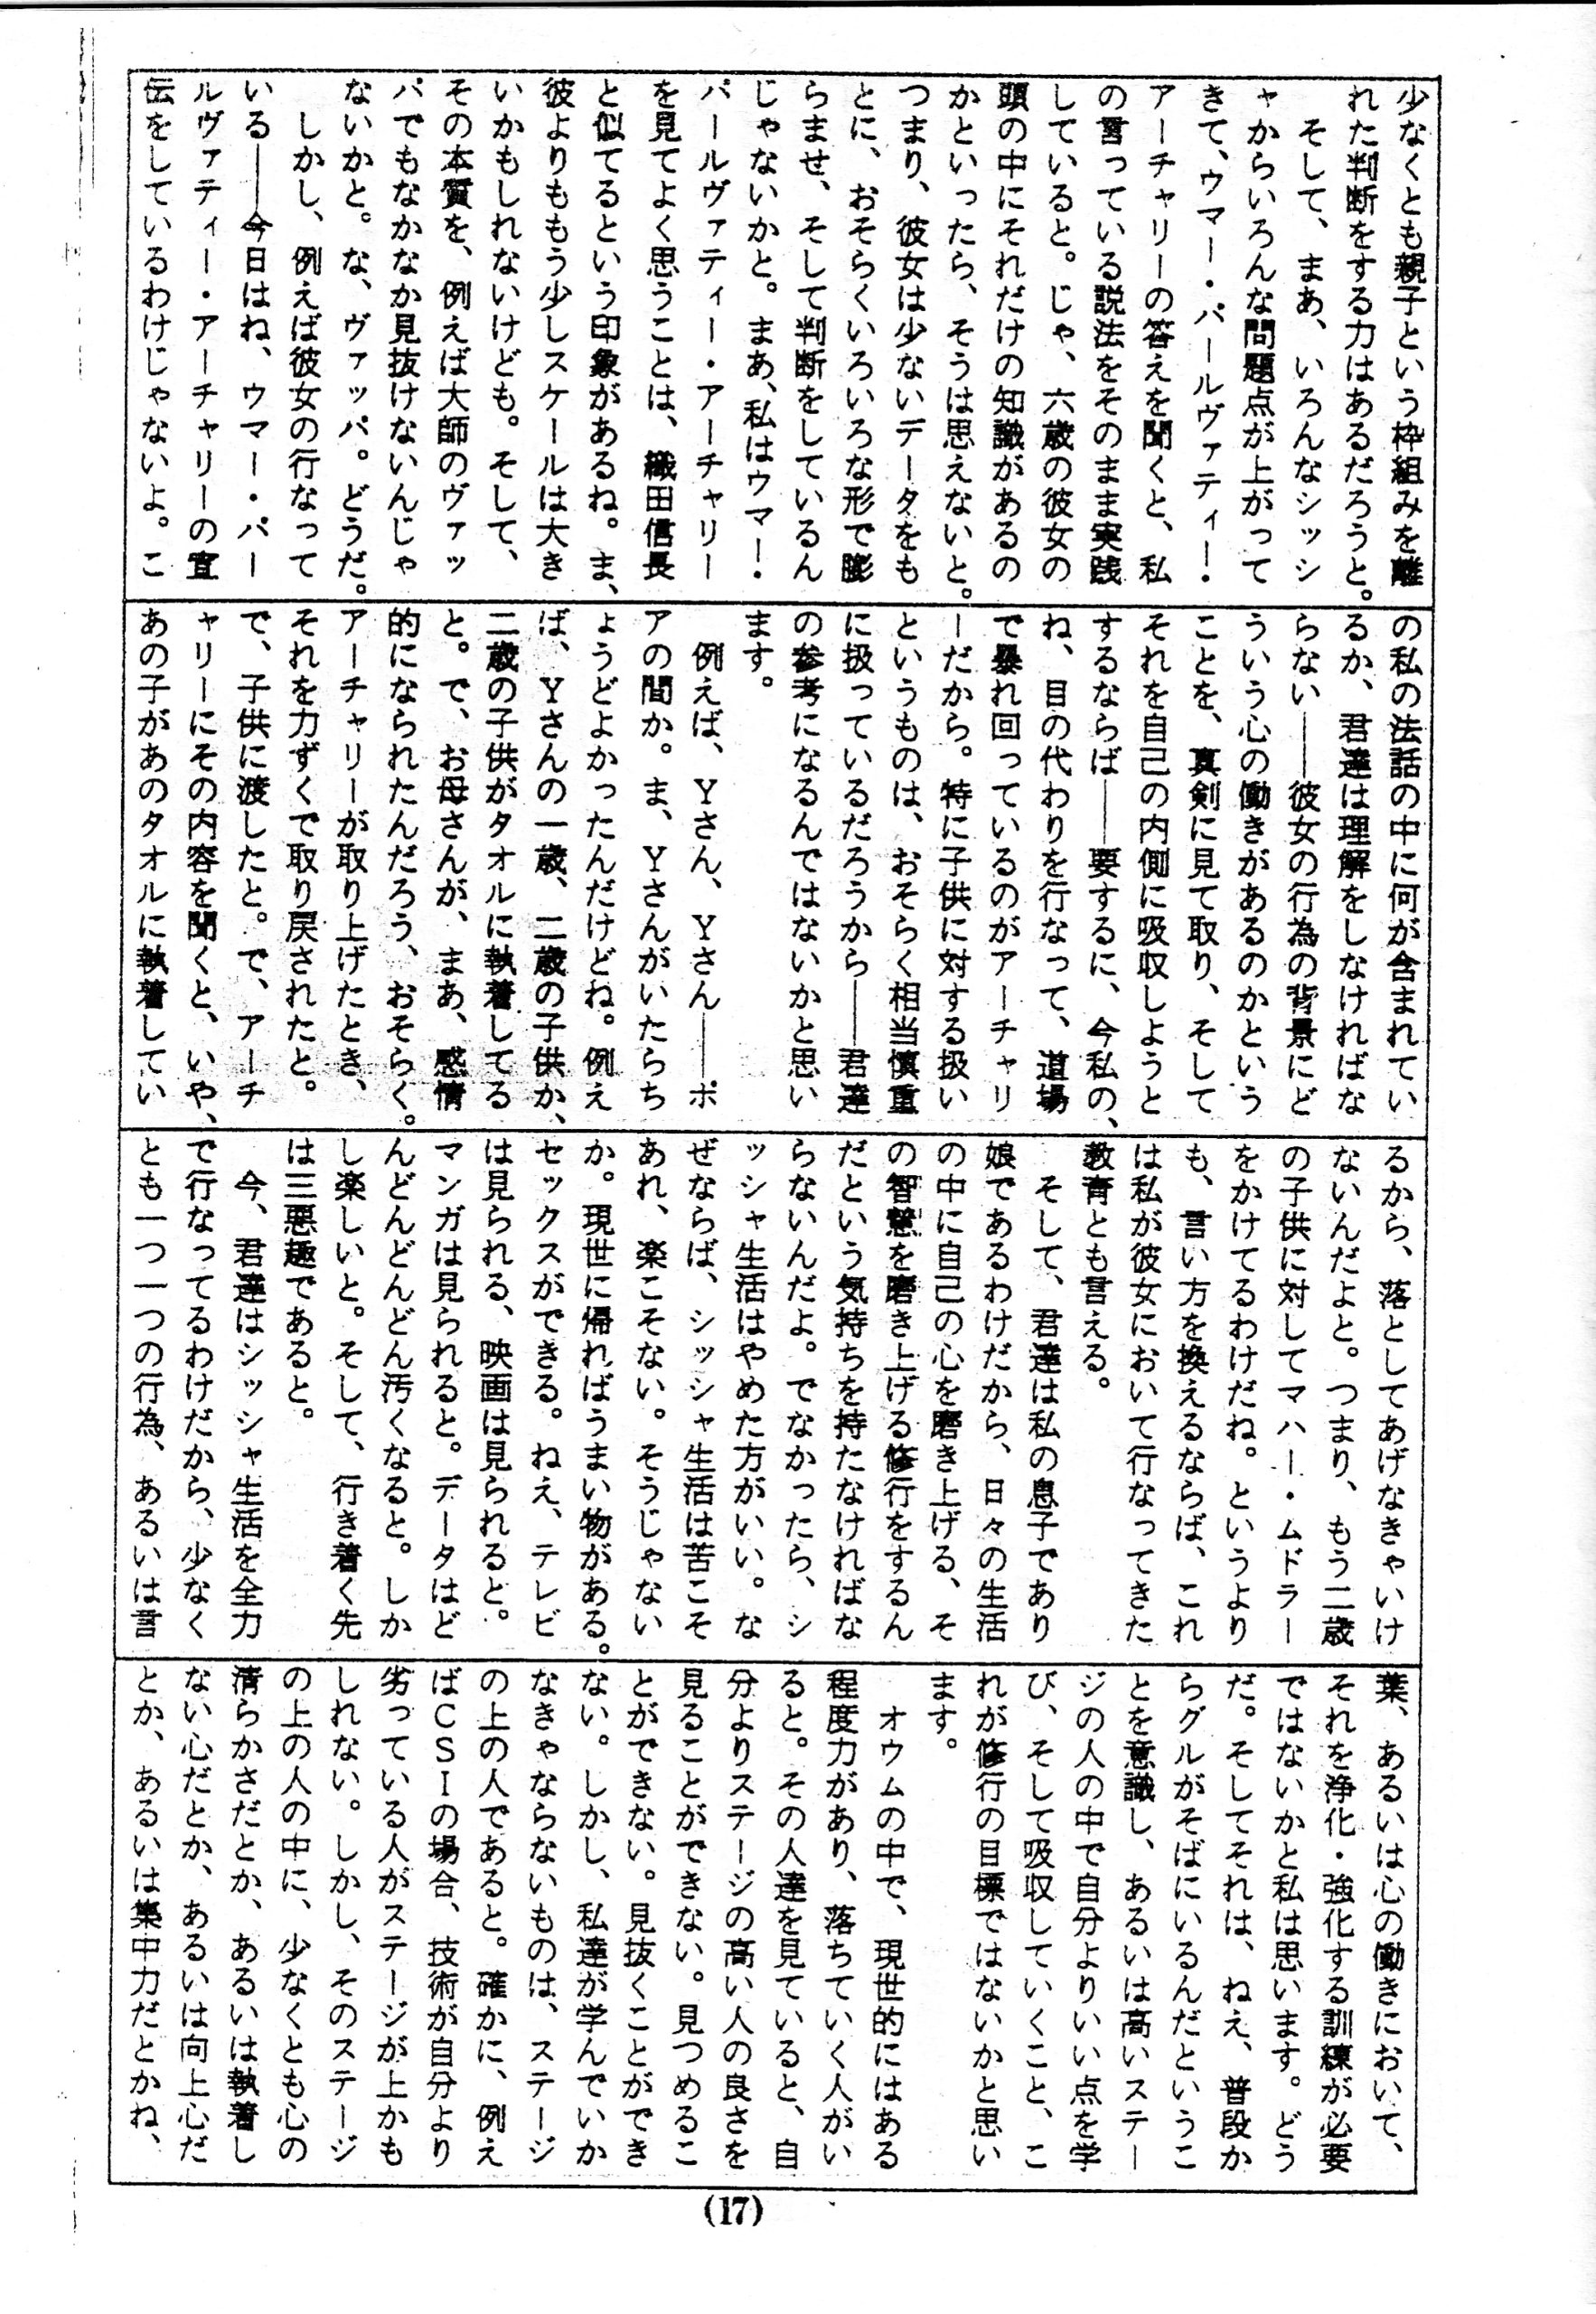 少なくとも親子という枠組みを離
れた判断をする力はあるだろうと。
そして、まあ、いろんなシッシ
ャからいろんな問題点が上がって
きて、ウマー・パールヴァティー・
アーチャリーの答えを聞くと、私
の言っている説法をそのまま実践
していると。じゃ、六歳の彼女の
頭の中にそれだけの知識があるの
かといったら、そうは思えないと。
つまり、彼女は少ないデータをも
とに、おそらくいろいろな形で膨
らませ、そして判断をしているん
じゃないかと。まあ、私はウマー・
パールヴァティー・アーチャリー
を見てよく思うことは、織田信長
と似てるという印象があるね。ま、
彼よりももう少しスケールは大き
いかもしれないけども。そして、
その本質を、例えば大師のヴァッ
パでもなかなか見抜けないんじゃ
ないかと。な、ヴァッパ。どうだ。
しかし、例えば彼女の行なって
いる――今日はね、ウマー・パー
ルヴァティー・アーチャリーの宣
伝をしているわけじゃないよ。こ
の私の法話の中に何が含まれてい
るか、君達は理解をしなければな
らない――彼女の行為の背景にど
ういう心の働きがあるのかという
ことを、真剣に見て取り、そして
それを自己の内側に吸収しようと
するならば――要するに、今私の、
ね、目の代わりを行なって、道場
で暴れ回っているのがアーチャリ
ーだから。特に子供に対する扱い
というものは、おそらく相当慎重
に扱っているだろうから――君達
の参考になるんではないかと思い
ます。
例えば、Yさん、Yさん――ポ
アの間か。ま、Yさんがいたらち
ょうどよかったんだけどね。例え
ば、Yさんの一歳、二歳の子供か、
二歳の子供がタオルに執着してる
と。で、お母さんが、まあ、感情
的になられたんだろう、おそらく。
アーチャリーが取り上げたとき、
それを力ずくで取り戻されたと。
で、子供に渡したと。で、アーチ
ャリーにその内容を聞くと、いや、
あの子があのタオルに執着してい
るから、落としてあげなきゃいけ
ないんだよと。つまり、もう二歳
の子供に対してマハー・ムドラー
をかけてるわけだね。というより
も、言い方を換えるならば、これ
は私が彼女において行なってきた
教育とも言える。
そして、君達は私の息子であり
娘であるわけだから、日々の生活
の中に自己の心を磨き上げる、そ
の智慧を磨き上げる修行をするん
だという気持ちを持たなければな
らないんだよ。でなかったら、シ
ッシャ生活はやめた方がいい。な
ぜならば、シッシャ生活は苦こそ
あれ、楽こそない。そうじゃない
か。現世に帰ればうまい物がある。
セックスができる。ねえ、テレビ
は見られる、映画は見られると。
マンガは見られると。データはど
んどんどんどん汚くなると。しか
し楽しいと。そして、行き着く先
は三悪趣であると。
今、君達はシッシャ生活を全力
で行なってるわけだから、少なく
とも一つ一つの行為、あるいは言
葉、あるいは心の働きにおいて、
それを浄化・強化する訓練が必要
ではないかと私は思います。どう
だ。そしてそれは、ねえ、普段か
らグルがそばにいるんだというこ
とを意識し、あるいは高いステー
ジの人の中で自分よりいい点を学
び、そして吸収していくこと、こ
れが修行の目標ではないかと思い
ます。
オウムの中で、現世的にはある
程度力があり、落ちていく人がい
ると。その人達を見ていると、自
分よりステージの高い人の良さを
見ることができない。見つめるこ
とができない。見抜くことができ
ない。しかし、私達が学んでいか
なきゃならないものは、ステージ
の上の人であると。確かに、例え
ばCSIの場合、技術が自分より
劣っている人がステージが上かも
しれない。しかし、そのステージ
の上の人の中に、少なくとも心の
清らかさだとか、あるいは執着し
ない心だとか、あるいは向上心だ
とか、あるいは集中力だとかね、
(17)